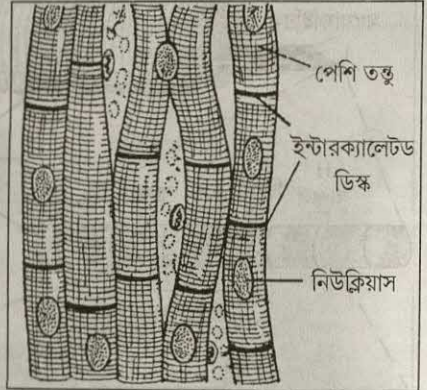 পেশি তন্তু
ইন্টারক্যালেটড
ডিস্ক
নিউক্লিয়াস